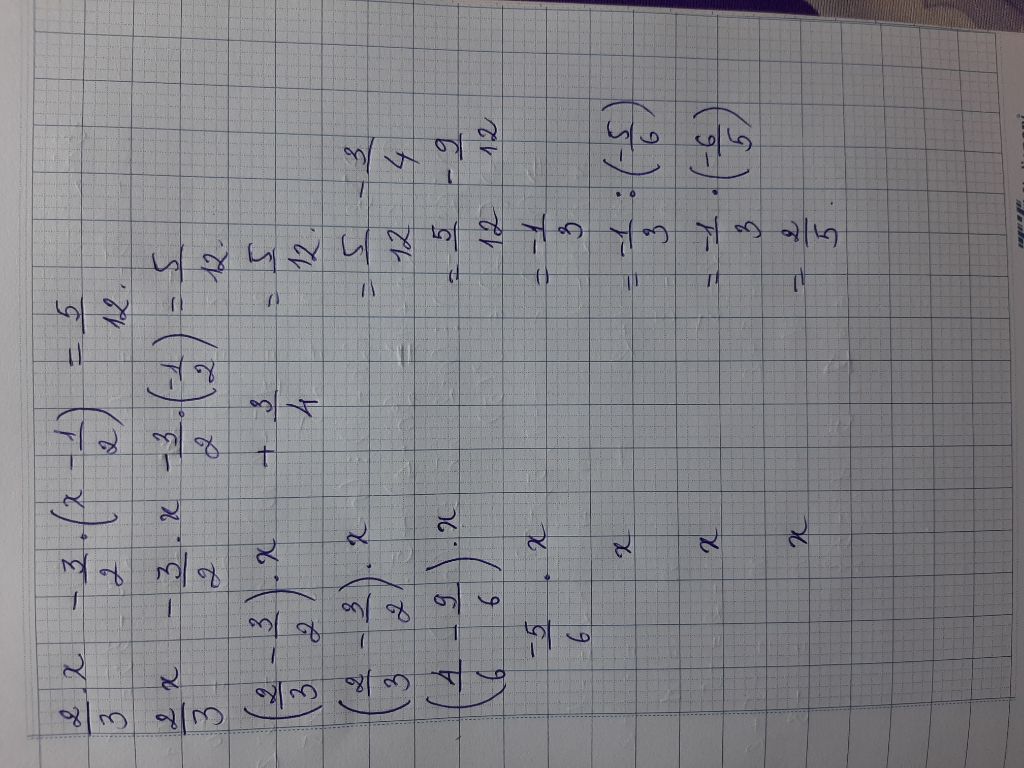 2/3 . x - 3/2 . (x - 1/2) = 5/12.
2/3 x - 3/2 . x - 3/2 . (-1/2) = 5/12.
(2/3 - 3/2) . x + 3/4 = 5/12.
(2/3 - 3/2) . x = 5/12 - 3/4
(4/6 - 9/6) . x = 5/12 - 9/12
-5/6 . x = -1/3
x = -1/3 : (-5/6)
x = -1/3 . (-6/5)
x = 2/5